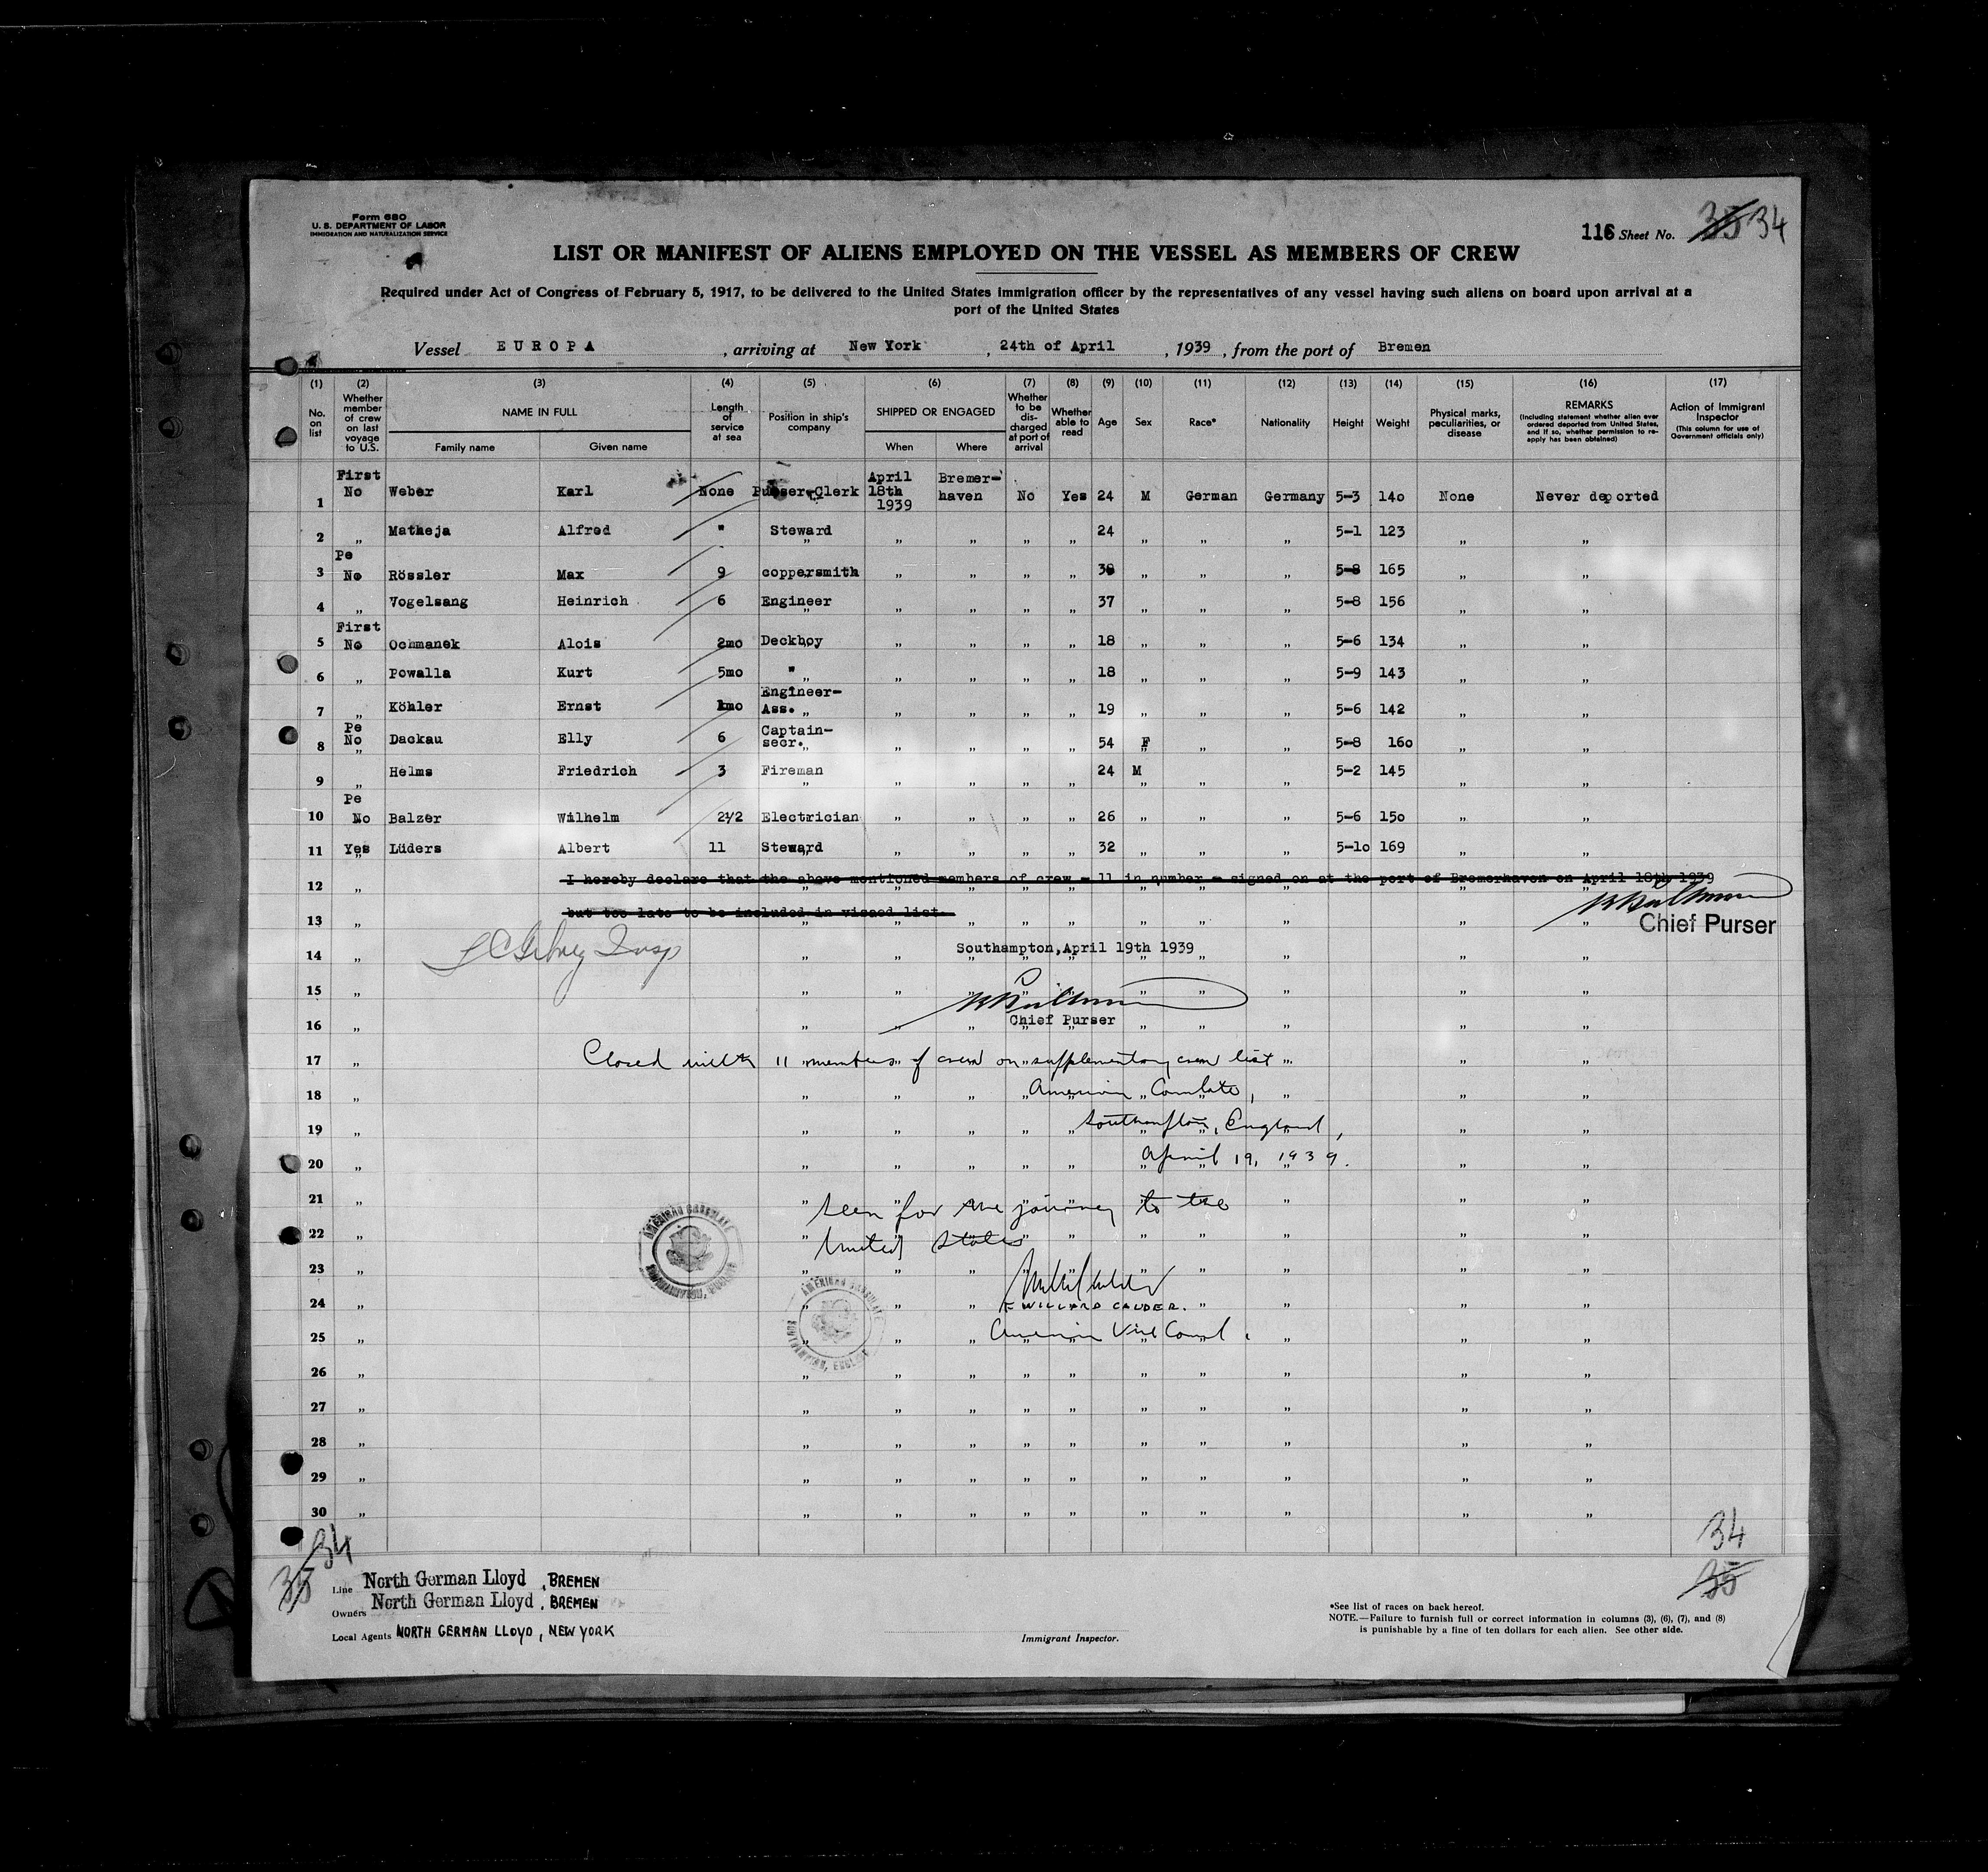 Form 680
U. S. DEPARTMENT OF LABOR
IMMIGRATION AND NATURALIZATION SERVICE
116 Sheet No. 35 34
LIST OR MANIFEST OF ALIENS EMPLOYED ON THE VESSEL AS MEMBERS OF CREW
Required under Act of Congress of February 5, 1917, to be delivered to the United States immigration officer by the representatives of any vessel having such aliens on board upon arrival at a
port of the United States
Vessel EUROPA, arriving at New York, 24th of April, 1939, from the port of Bremen
(1) (2) (3) (4) (5) (6) (7) (8) (9) (10) (11) (12) (13) (14) (15) (16) (17)
No. on list Whether member of crew on last voyage to U.S. NAME IN FULL Family name Given name Length of service at sea Position in ship's company SHIPPED OR ENGAGED When Where Whether to be discharged at port of arrival Whether able to read Age Sex Race* Nationality Height Weight Physical marks, peculiarities, or disease REMARKS (Including statement whether alien ever ordered deported from United States, and if so, whether permission to re-apply has been obtained) Action of Immigrant Inspector (This column for use of Government officials only)
1 First No Weber Karl None Purser-Clerk April 18th 1939 Bremer-haven No Yes 24 M German Germany 5-3 140 None Never deported
2 „ Matheja Alfred " Steward „ „ „ „ 24 „ „ „ 5-1 123 „ „
3 Pe No Rössler Max 9 coppersmith „ „ „ „ 38 „ „ „ 5-8 165 „ „
4 „ Vogelsang Heinrich 6 Engineer „ „ „ „ 37 „ „ „ 5-8 156 „ „
5 First No Ochmanek Alois 2mo Deckboy „ „ „ „ 18 „ „ „ 5-6 134 „ „
6 „ Powalla Kurt 5mo " „ „ „ „ 18 „ „ „ 5-9 143 „ „
7 „ Köhler Ernst 1mo Engineer-Ass. „ „ „ „ 19 „ „ „ 5-6 142 „ „
8 Pe No Dackau Elly 6 Captain-secr. „ „ „ „ 54 F „ „ 5-8 160 „ „
9 „ Helms Friedrich 3 Fireman „ „ „ „ 24 M „ „ 5-2 145 „ „
10 Pe No Balzer Wilhelm 2 1/2 Electrician „ „ „ „ 26 „ „ „ 5-6 150 „ „
11 Yes Lüders Albert 11 Steward „ „ „ „ 32 „ „ „ 5-10 169 „ „
12 I hereby declare that the above mentioned members of crew - 11 in number - signed on at the port of Bremerhaven on April 18th 1939
13 but too late to be included in visaed list.
Chief Purser
14 Southampton, April 19th 1939
15
16 Chief Purser
17 Closed with 11 members of crew on supplementary crew list
18 American Consulate,
19 Southampton, England,
20 April 19, 1939.
21 Seen for the journey to the
22 United States
AMERICAN CONSULATE
SOUTHAMPTON, ENGLAND
23
24 F WILLARD CALDER.
25 American Vice Consul.
AMERICAN CONSULATE
SOUTHAMPTON, ENGLAND
26
27
28
29
30
34
35
34
35
Line North German Lloyd, BREMEN
Owners North German Lloyd, BREMEN
Local Agents NORTH GERMAN LLOYD, NEW YORK
Immigrant Inspector.
*See list of races on back hereof.
NOTE.—Failure to furnish full or correct information in columns (3), (6), (7), and (8)
is punishable by a fine of ten dollars for each alien. See other side.